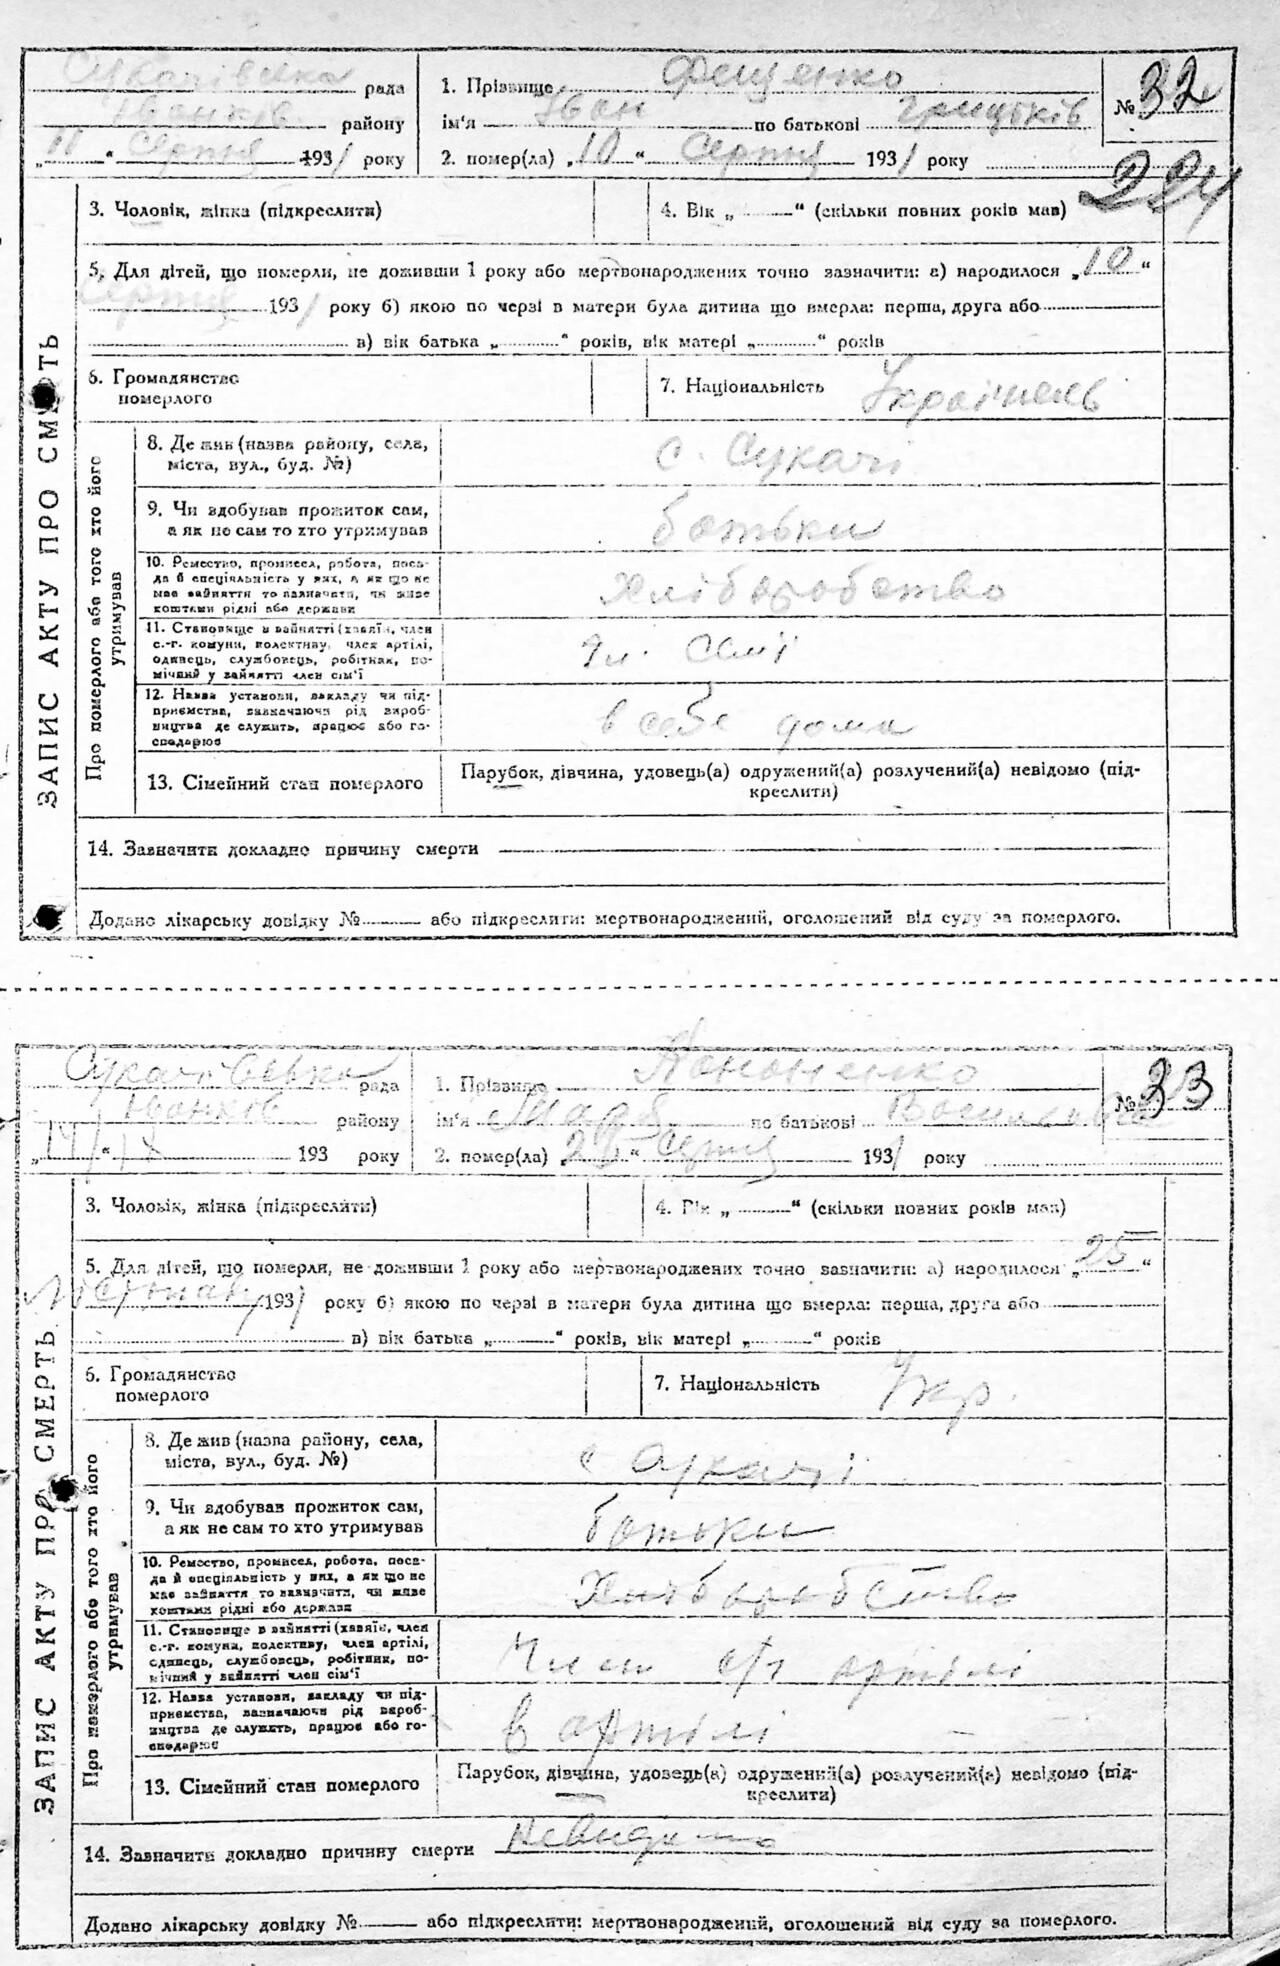 Сукачівська рада
Іванків району
„11“ Серпня 1931 року
1. Прізвище Фещенко
ім'я Іван по батькові Грицьків
2. помер(ла) „10“ Серпня 1931 року
№ 32
224
3. Чоловік, жінка (підкреслити)
4. Вік „ “ (скільки повних років мав)
5. Для дітей, що померли, не доживши 1 року або мертвонароджених точно зазначити: а) народилося „10“
Серпня 1931 року б) якою по черзі в матери була дитина що вмерла: перша, друга або
в) вік батька „ “ років, вік матері „ “ років
6. Громадянство
померлого
7. Національність Українець
ЗАПИС АКТУ ПРО СМЕРТЬ
Про померлого або того хто його
утримував
8. Де жив (назва району, села,
міста, вул., буд. №)
с. Сукачі
9. Чи здобував прожиток сам,
а як не сам то хто утримував
батьки
10. Ремество, промисел, робота, поса-
да й спеціяльність у них, а як що не
має зайняття то зазначити, чи живе
коштами рідні або держави
Хліборобство
11. Становище в зайнятті (хазяїн, член
с.-г. комуни, колективу, член артілі,
одинець, службовець, робітник, по-
мічний у зайнятті член сім'ї
Чл. Семї
12. Назва установи, закладу чи під-
приємства, зазначаючи рід вироб-
ництва де служить, працює або го-
сподарює
в себе дома
13. Сімейний стан померлого
Парубок, дівчина, удовець(а) одружений(а) розлучений(а) невідомо (під-
креслити)
14. Зазначити докладно причину смерти
Додано лікарську довідку № або підкреслити: мертвонароджений, оголошений від суду за померлого.
рада
Іванків району
193 року
1. Прізвище
ім'я по батькові
2. помер(ла) Серпня 1931 року
№ 33
3. Чоловік, жінка (підкреслити)
4. Вік „ “ (скільки повних років мав)
5. Для дітей, що померли, не доживши 1 року або мертвонароджених точно зазначити: а) народилося „25“
193 року б) якою по черзі в матери була дитина що вмерла: перша, друга або
в) вік батька „ “ років, вік матері „ “ років
6. Громадянство
померлого
7. Національність Укр.
ЗАПИС АКТУ ПРО СМЕРТЬ
Про померлого або того хто його
утримував
8. Де жив (назва району, села,
міста, вул., буд. №)
с Сукачі
9. Чи здобував прожиток сам,
а як не сам то хто утримував
батьки
10. Ремество, промисел, робота, поса-
да й спеціяльність у них, а як що не
має зайняття то зазначити, чи живе
коштами рідні або держави
Хліборобство
11. Становище в зайнятті (хазяїн, член
с.-г. комуни, колективу, член артілі,
одинець, службовець, робітник, по-
мічний у зайнятті член сім'ї
Член с/г артілі
12. Назва установи, закладу чи під-
приємства, зазначаючи рід вироб-
ництва де служить, працює або го-
сподарює
в артілі
13. Сімейний стан померлого
Парубок, дівчина, удовець(а) одружений(а) розлучений(а) невідомо (під-
креслити)
14. Зазначити докладно причину смерти
Додано лікарську довідку № або підкреслити: мертвонароджений, оголошений від суду за померлого.